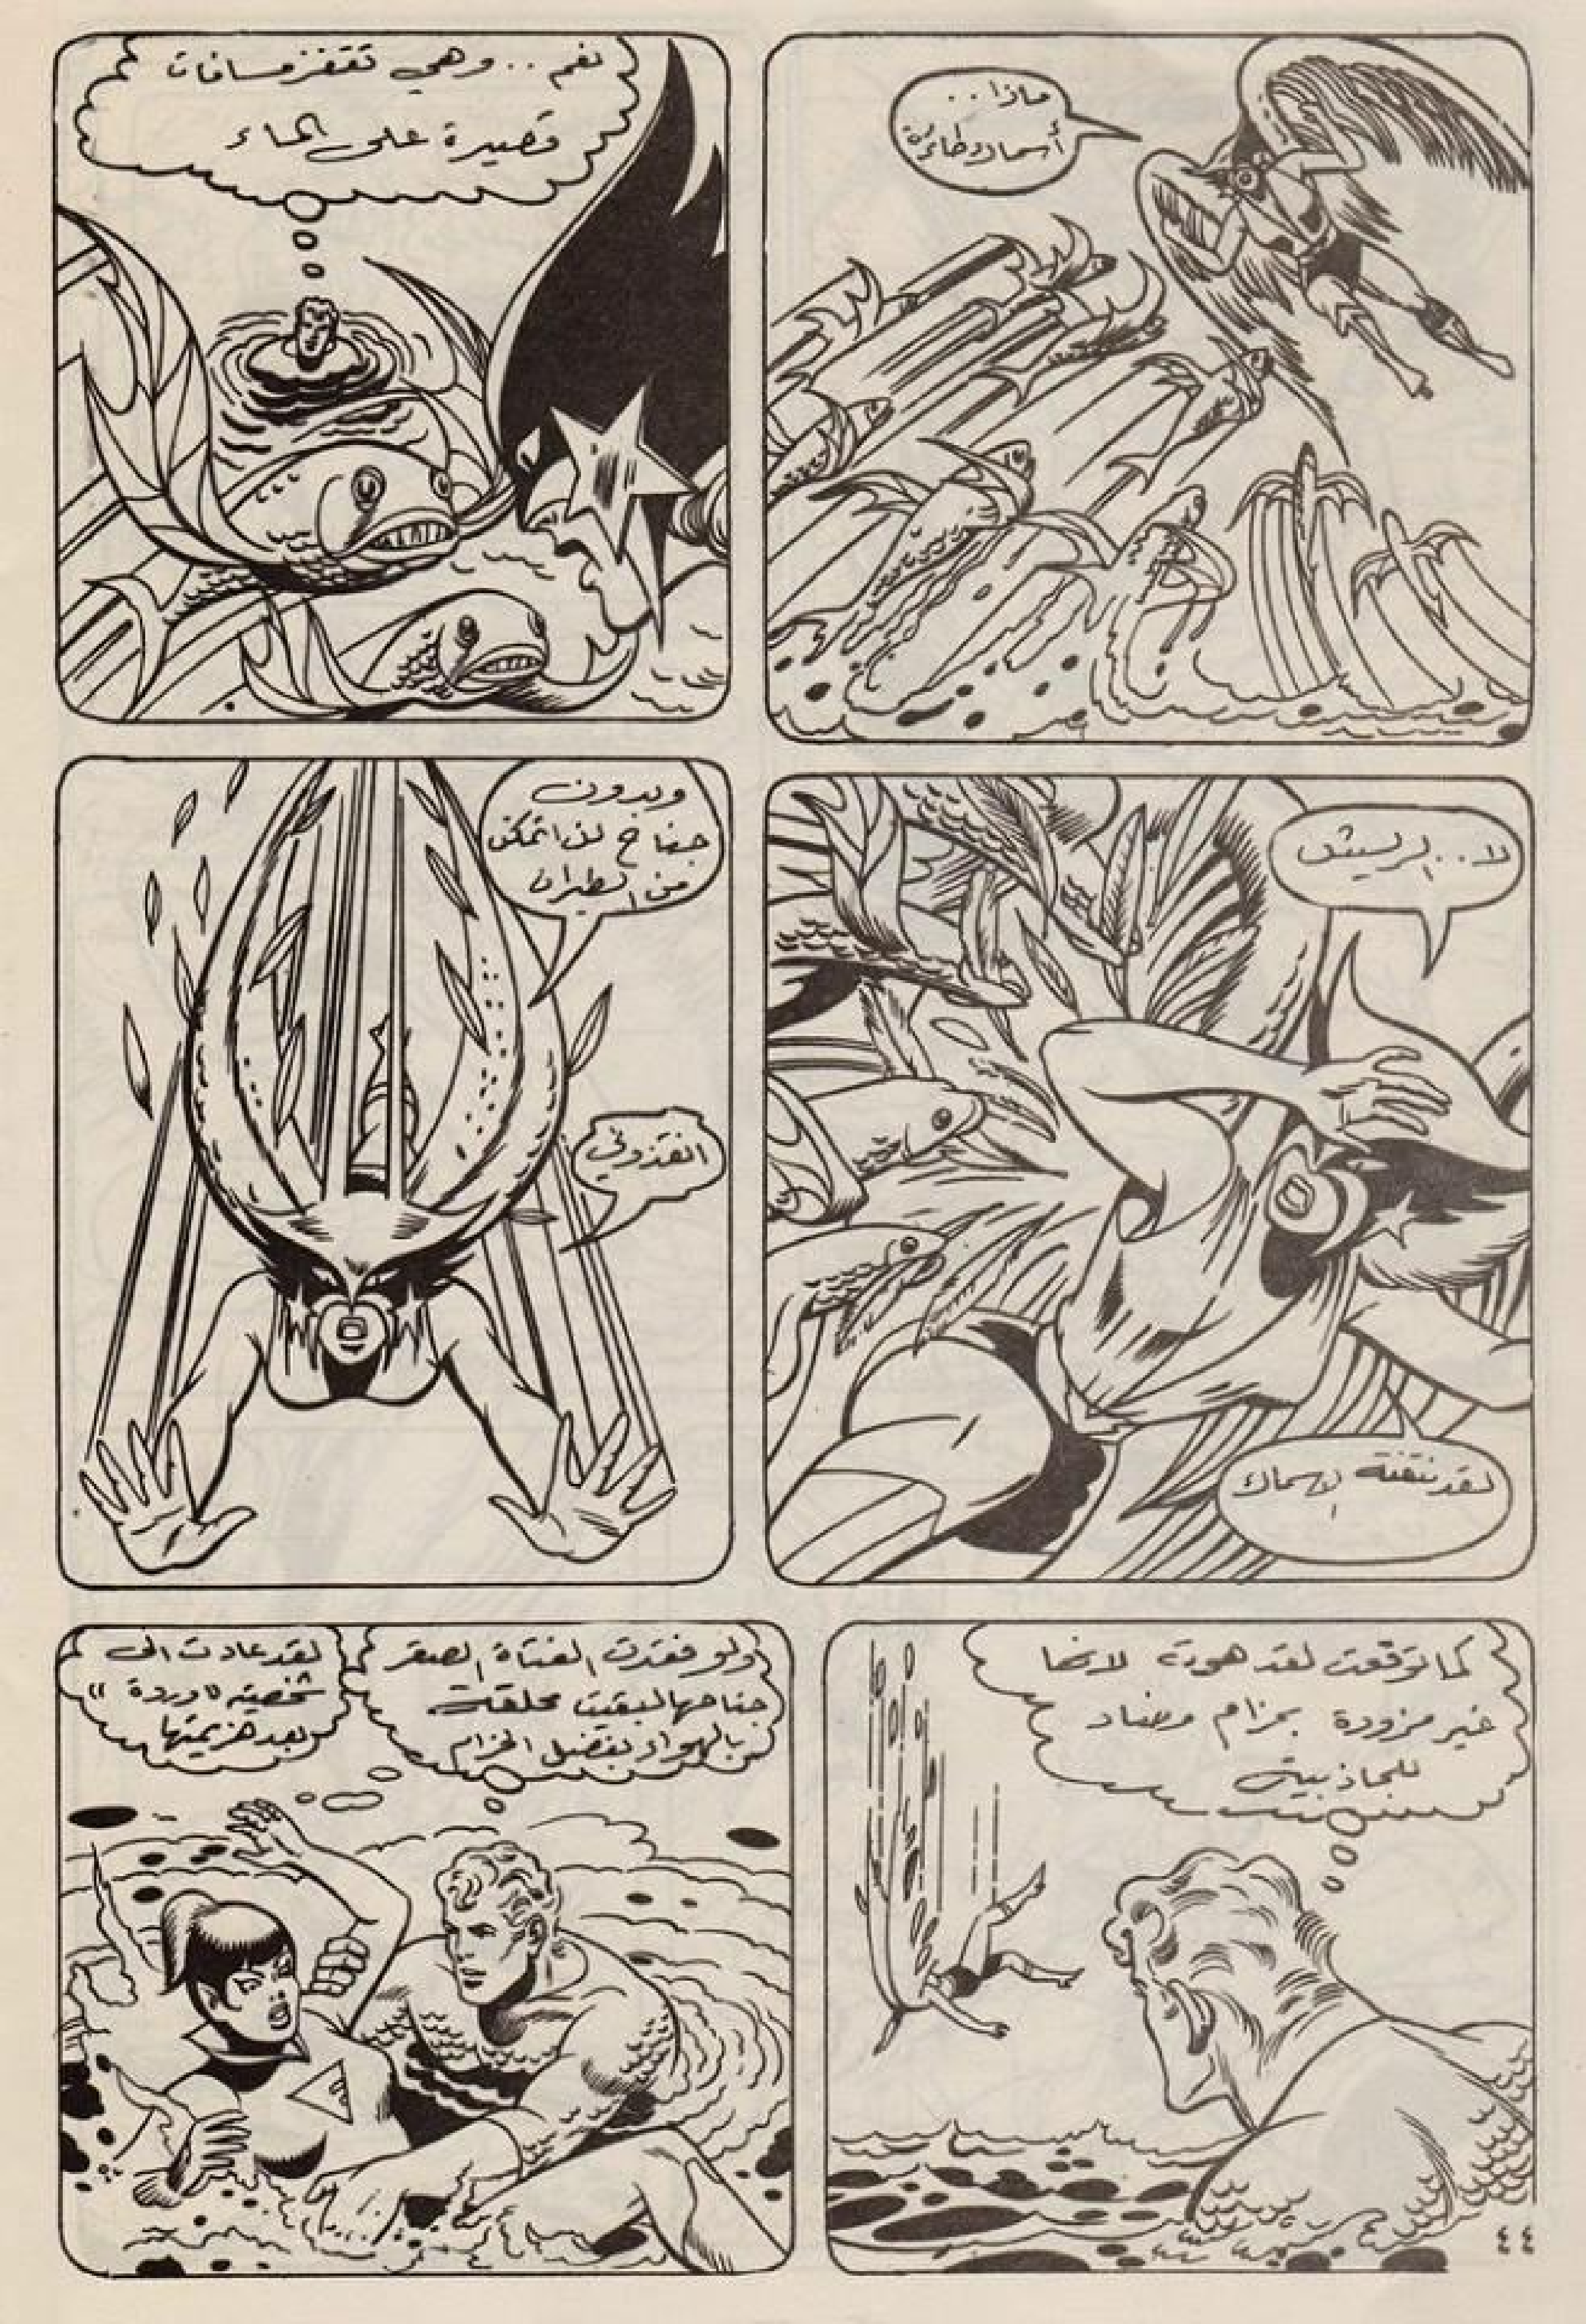 ماذا..
أسماك طائرة
نعم.. وهي تقفز مسافات
قصيرة على الماء
لا.. الريش
لقد نتفته الاسماك
وبدون
جناح لن اتمكن
من الطيران
انقذوني
كما توقعت لقد هوت لانها
غير مزودة بحزام مضاد
للجاذبية
ولو فقدت الفتاة الصقر
جناحها لبقيت محلقة
بالهواء بفضل الحزام
لقد عادت الى
شخصية "وردة"
بعد هزيمتها
٤٤